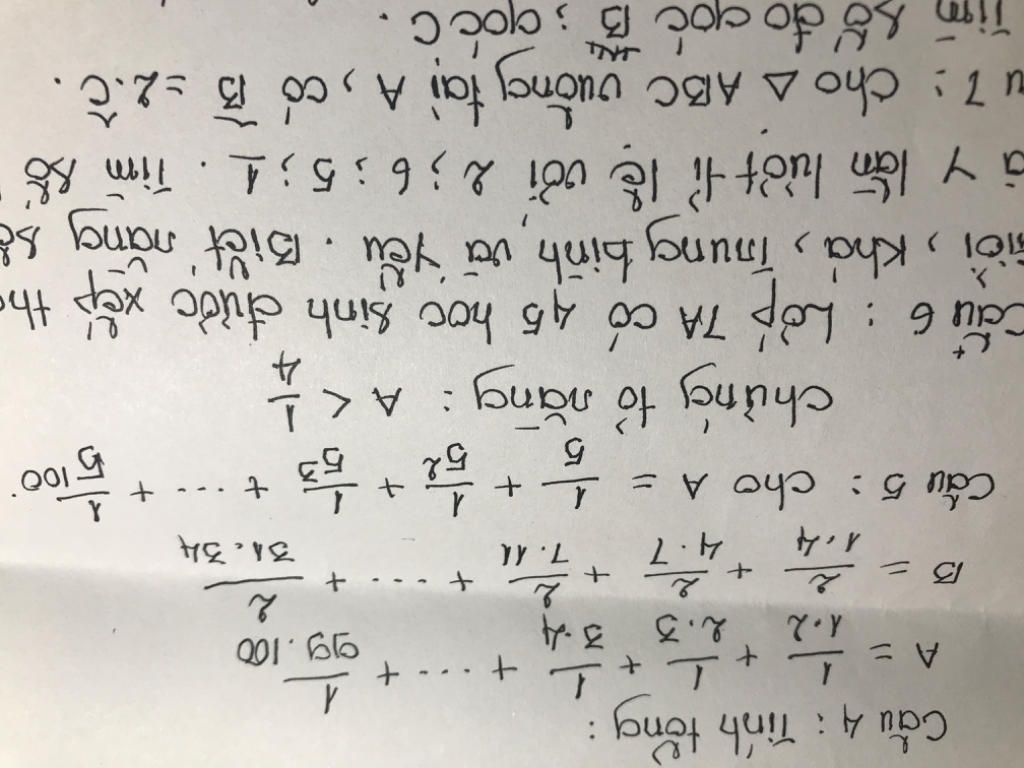 Câu 4 : Tính tổng :
A = 1/1.2 + 1/2.3 + 1/3.4 + .... + 1/99.100
B = 2/1.4 + 2/4.7 + 2/7.11 + .... + 2/31.34
Câu 5 : Cho A = 1/5 + 1/5² + 1/5³ + ... + 1/5¹⁰⁰.
Chứng tỏ rằng : A < 1/4
Câu 6 : Lớp 7A có 45 học sinh được xếp
Khá, Trung bình và Yếu . Biết rằng
Y lần lượt tỉ lệ với 2 ; 6 ; 5 ; 1 . Tìm số
7 : Cho Δ ABC vuông tại A, có B̂ = 2.Ĉ .
Tìm số đo góc B ; góc C .